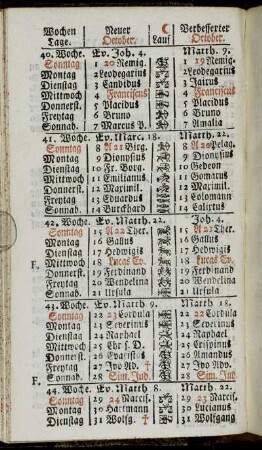 Wochen Neuer ☾ Verbesserter
Tage. October. Lauf October.
40. Woche. Ev. Joh. 4. Matth. 9.
Sonntag 1 20 Remig. 1 19 Remig.
Montag 2 Leodegarius 2 Leodegarius
Dienstag 3 Candidus 3 Jairus
Mittwoch 4 Franciscus 4 Franciscus
Donnerst. 5 Placidus 5 Placidus
Freytag 6 Bruno 6 Bruno
Sonnab. 7 Marcus P. 7 Amalia
41. Woche. Ev. Marc. 12. Matth. 22.
Sonntag 8 A 21 Brig. 8 A 20 Pelag.
Montag 9 Dionysius 9 Dionysius
Dienstag 10 Fr. Borg. 10 Gedeon
Mittwoch 11 Emilianus. 11 Gomatus
Donnerst. 12 Maximil. 12 Maximil.
Freytag 13 Eduardus 13 Colomann
Sonnab. 14 Burckhard 14 Calixtus
42. Woche. Ev. Matth. 22. Joh. 4.
Sonntag 15 A 22 Ther. 15 A 21 Ther.
Montag 16 Gallus 16 Gallus
Dienstag 17 Hedwigis 17 Hedwigis
F. Mittwoch 18 Lucas Ev. 18 Lucas Ev.
Donnerst. 19 Ferdinand 19 Ferdinand
Freytag 20 Wendelina 20 Wendelina
Sonnab. 21 Ursula 21 Ursula
43. Woche. Ev. Matth 9. Matth 18.
Sonntag 22 23 Cordula 22 22 Cordula
Montag 23 Severinus 23 Severinus
Dienstag 24 Raphael 24 Raphael
Mittwoch 25 Chr. S. D. 25 Crispinus
Donnerst. 26 Evaristus 26 Amandus
Freytag 27 Ivo Adv. † 27 Ivo Adv.
F. Sonnab. 28 Sim. Jud. 28 Sim. Jud.
44. Woche. Ev. Matth 8. Matth. 22.
Sonntag 29 24 Narcis. 29 23 Narcis.
Montag 30 Hartmann 30 Lucianus
Dienstag 31 Wolfg. † 31 Wolfgang